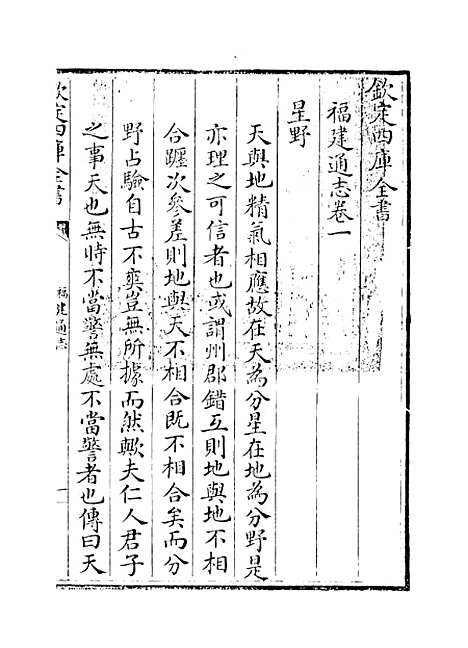 欽定四庫全書
福建通志卷一
星野
天與地精氣相應故在天為分星在地為分野是
亦理之可信者也或謂州郡錯互則地與地不相
合躔次參差則地與天不相合既不相合矣而分
野占驗自古不爽豈無所據而然歟夫仁人君子
之事天也無時不當警無處不當警者也傳曰天
欽定四庫全書
福建通志
一